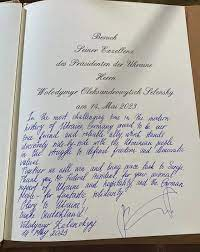 Besuch
Seiner Exzellenz
des Präsidenten der Ukraine
Herrn
Wolodymyr Oleksandrowytsch Selensky
am 14. Mai 2023
In the most challenging time in the modern
history of Ukraine, Germany proved to be our
true friend and reliable ally, which stands
decisively side-by-side with the Ukrainian people
in the struggle to defend freedom and democratic
values.
Together we will win and bring peace back to Europe
Thank you to personal for your personal
support of Ukraine and hospitality and to German
people - for fantastic solidarity!
Glory to Ukraine!
Danke Deutschland!
Volodymyr Zelenskyy
14 May 2023